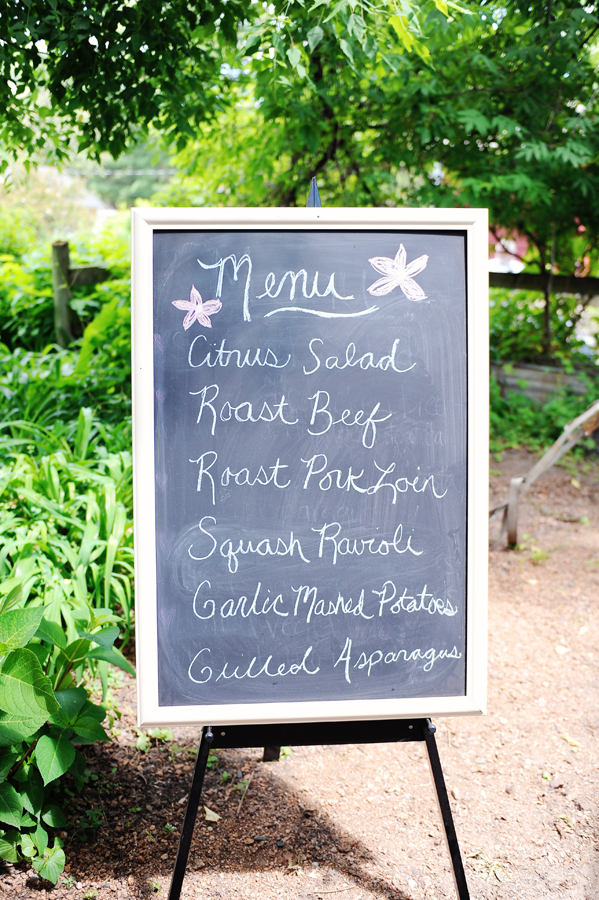 Menu
Citrus Salad
Roast Beef
Roast Pork Loin
Squash Ravioli
Garlic Mashed Potatoes
Grilled Asparagus